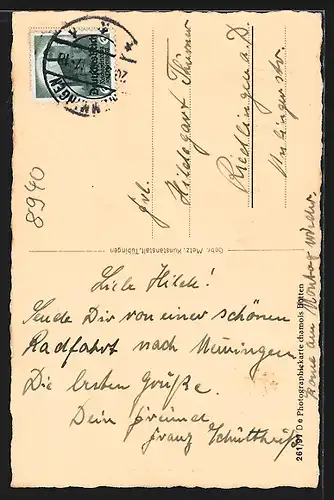 Liebe Hilde!
Sende Dir von einer schönen
Radfahrt nach
Die besten Grüße.
Dein Freund
Franz Schultheiß
komme am Montag wieder.
Frl.
Hildegart
Riedlingen a. D.
8940
Gebr. Metz, Kunstanstalt, Tübingen
261/91 De Photographiekarte chamois Bütten
Deutsches Reich